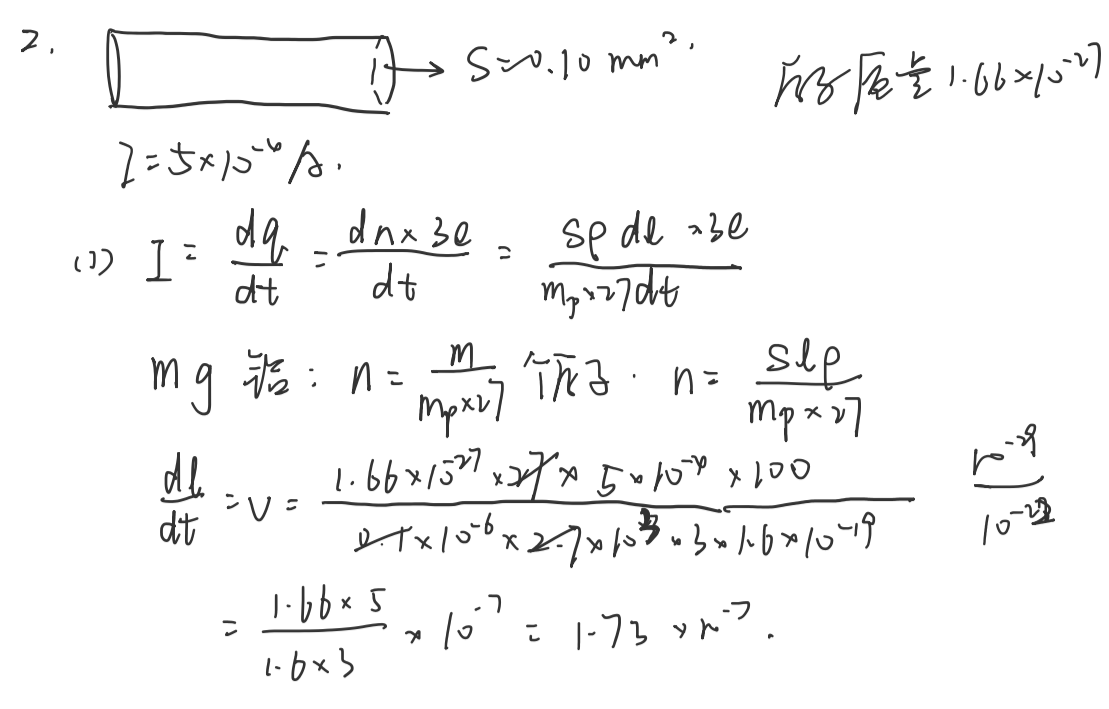 2. S=0.10 mm². 质量 1.66×10⁻²⁷
I=5×10⁻⁶ A.
(1) I = dq/dt = dn×3e/dt = Sρ dl ×3e/mp×27dt
mg 铝: n = m/mp×27 个原子. n = Slρ/mp×27
dl/dt = v = 1.66×10⁻²⁷ ×27× 5×10⁻⁶ ×100/0.1×10⁻⁶×2.7×10³×3×1.6×10⁻¹⁹ 10⁻²⁹/10⁻²²
= 1.66×5/1.6×3 × 10⁻⁷ = 1.73 ×10⁻⁷.